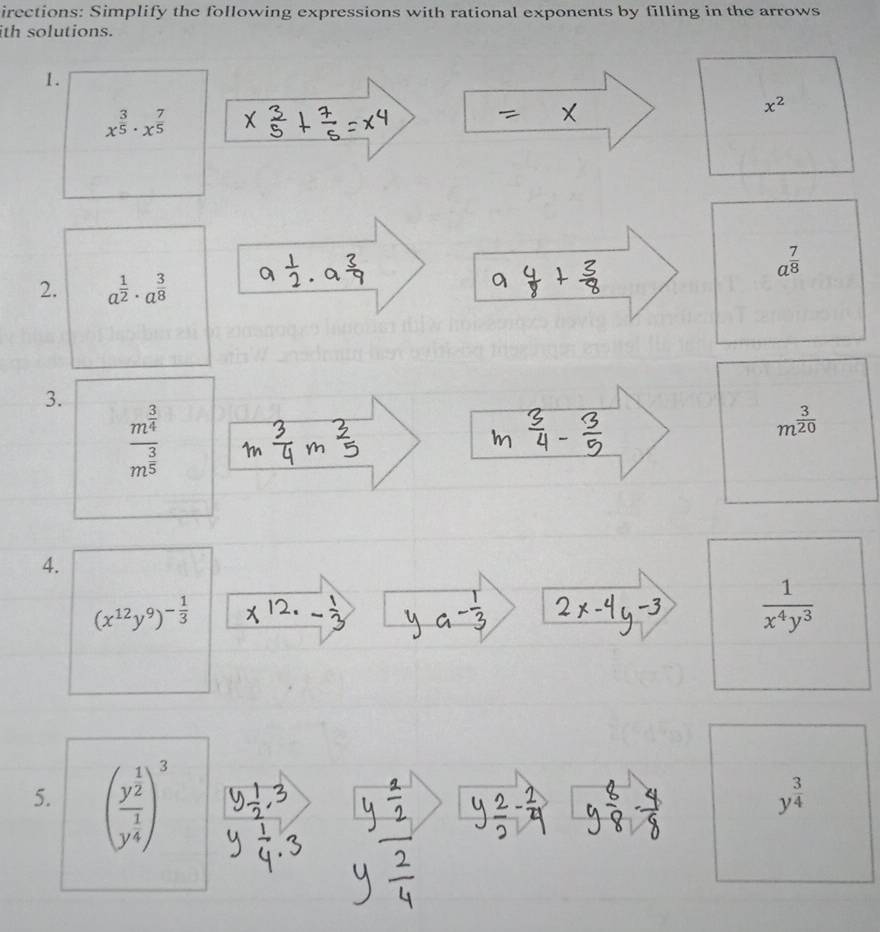 irections: Simplify the following expressions with rational exponents by filling in the arrows
ith solutions.
1. x^{3/5} · x^{7/5} x 3/5 + 7/5 = x4 = x x^2
2. a^{1/2} · a^{3/8} a 1/2 . a 3/9 a 4/8 + 3/8 a^{7/8}
3. m^{3/4} / m^{3/5} m 3/4 m 3/5 m 3/4 - 3/5 m^{3/20}
4. (x^{12}y^9)^{-1/3} x 12 . -1/3 y a -1/3 2x-4y-3 1/(x^4y^3)
5. (y^{1/2} / y^{1/4})^3 y 1/2 . 3 y 1/4 . 3 y 2/2 / y 2/4 y 2/2 - 2/4 y 8/8 - 4/8 y^{3/4}